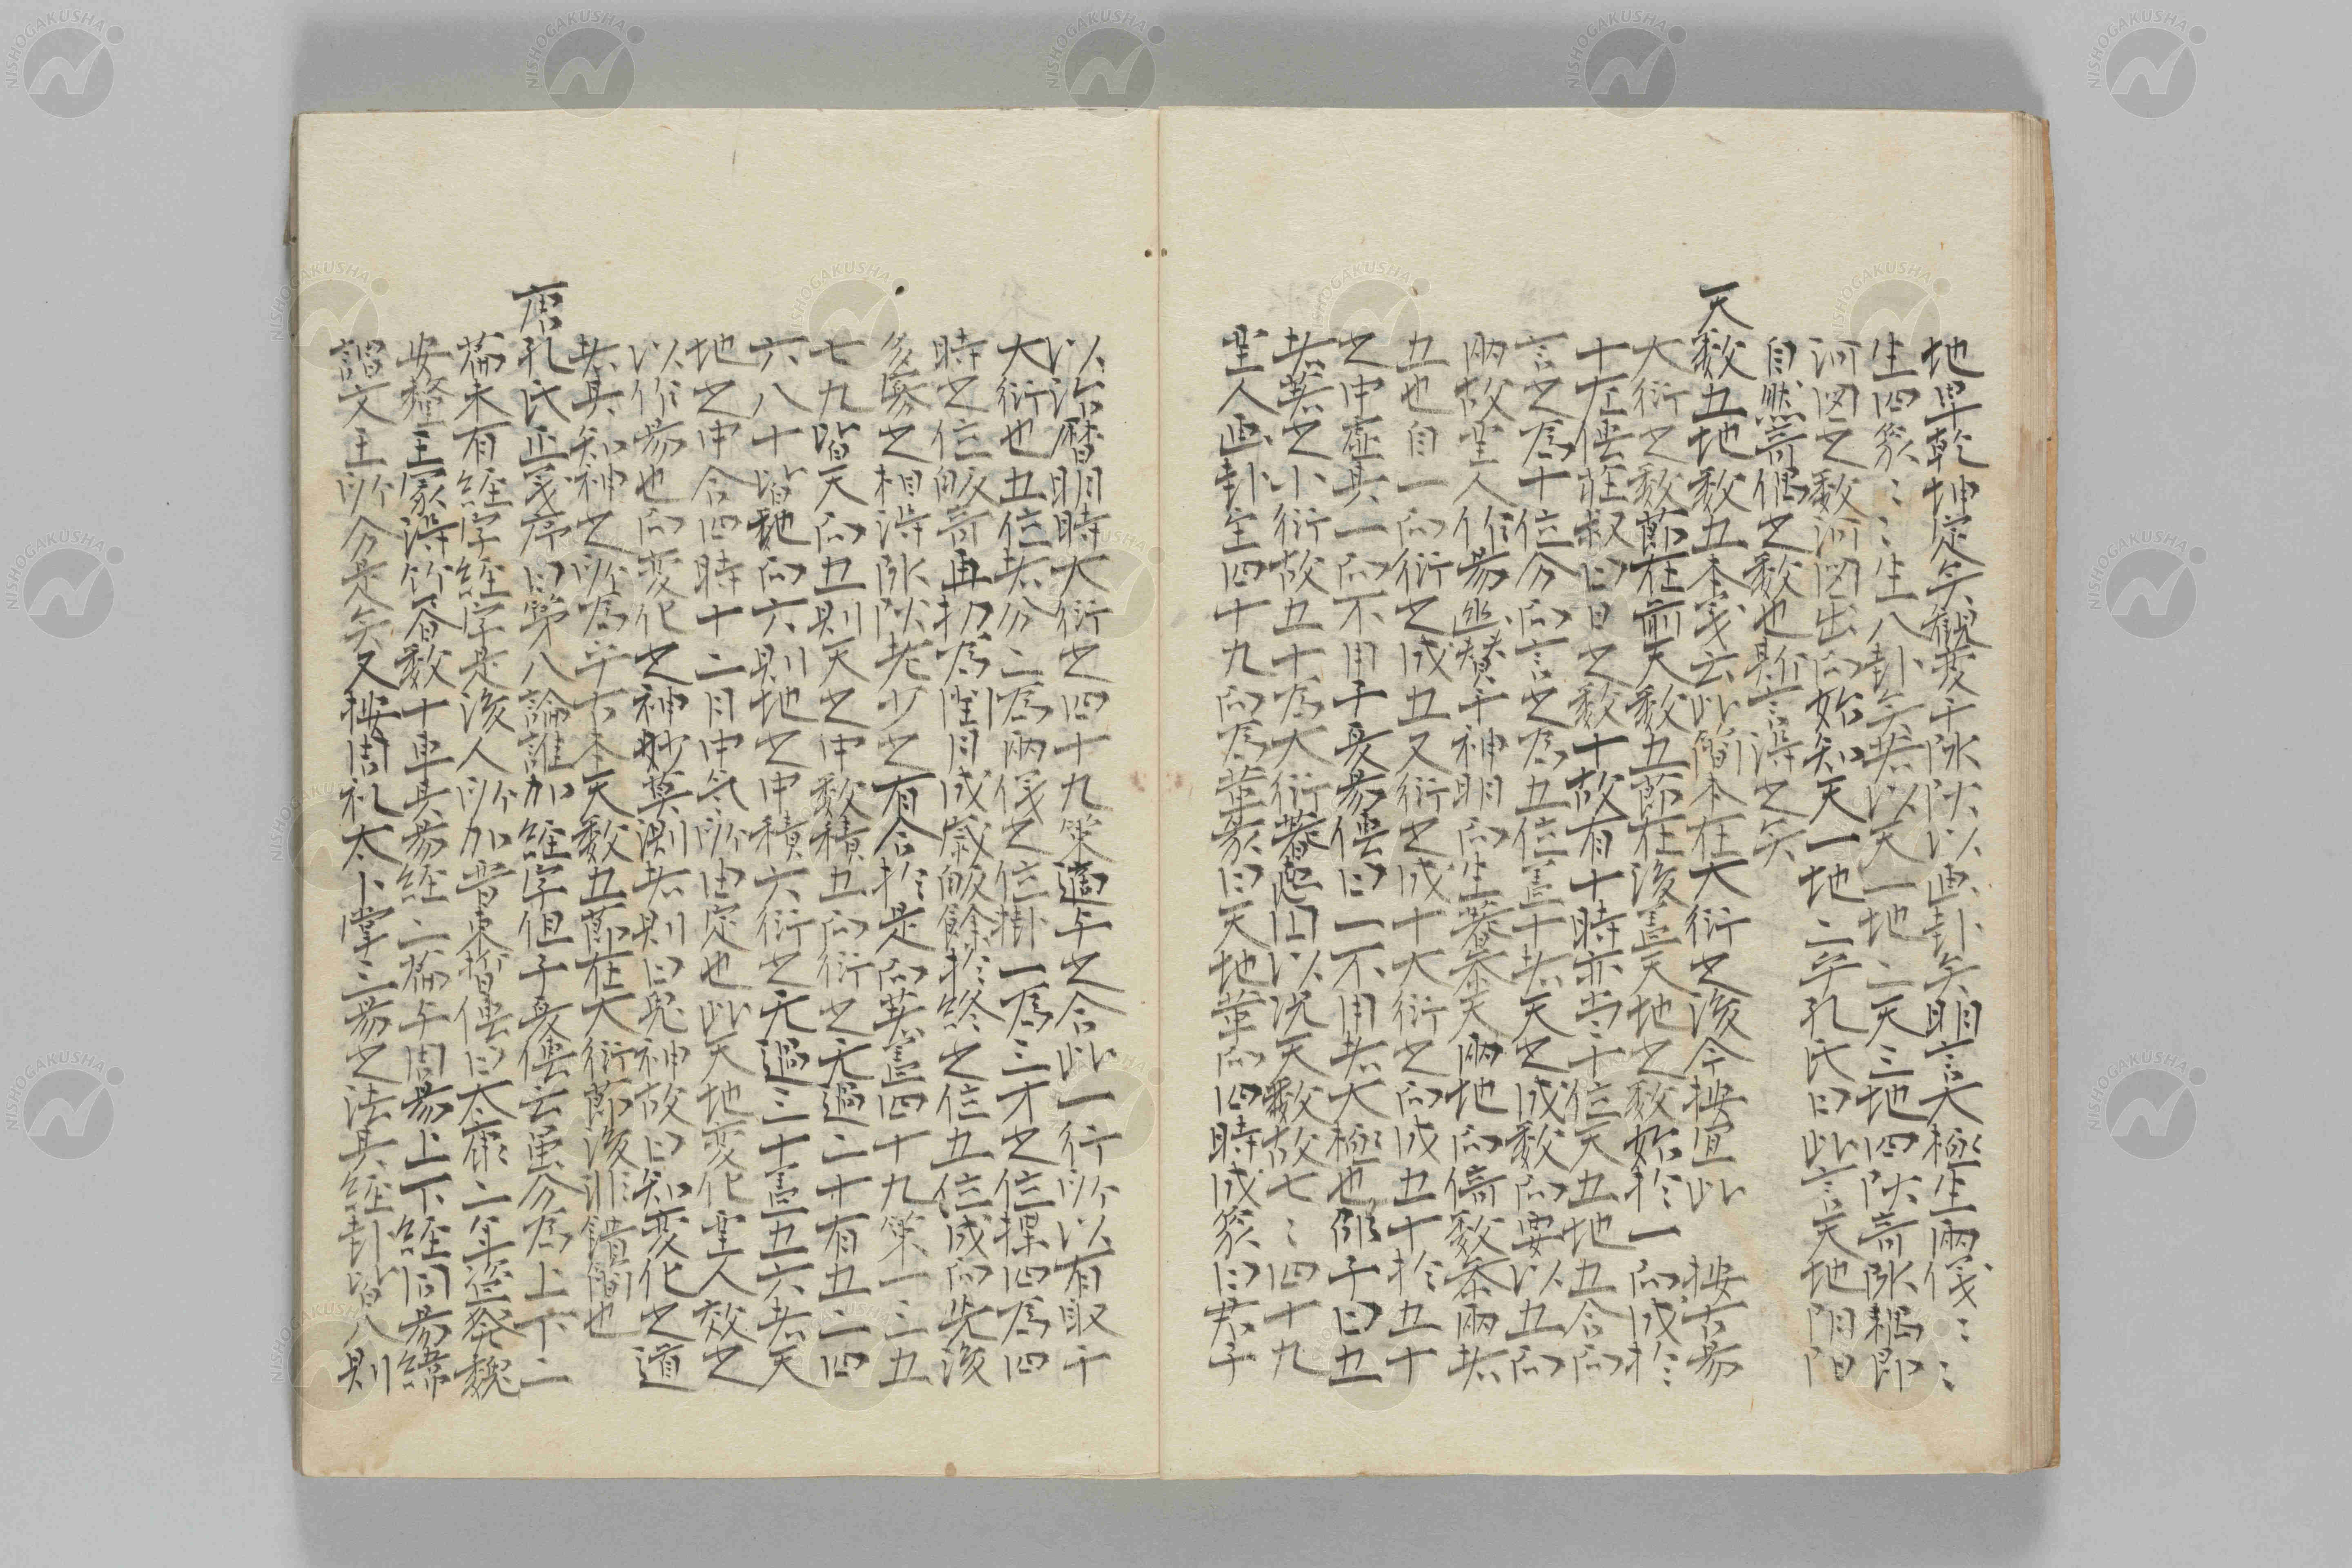 地卑乾坤定矣観変于阴阳以画卦矣明言大極生兩儀〻〻
生四象〻〻生八卦矣者以天一地二天三地四阳奇阴耦即
河図之数河図出而始知天一地二乎孔氏曰此言天地阴阳
自然奇偶之数也斯言得之矣
天数五地数五本義云此簡本在大衍之後今按宜此　按古易
大衍之数節在前天数五節在後盖天地之数始於一而成於
十左傳荘叔曰日之数十故有十時亦当十位天五地五合而
言之為十位分而言之為五位盖十者天之成数而要以五而
兩故聖人作易幽賛于神明而生蓍参天兩地而倚数参兩者
五也自一而衍之成五又衍之成十大衍之而成五十於五十
之中虚其一而不用子夏易傳曰一不用者大極也邵子曰五
者蓍之小衍故五十為大衍蓍起田以况天数故七〻四十九
聖人画卦全四十九而為革象曰天地革而四時成象曰君子
以治暦明時大衍之四十九策適乎之合此一行所以有取于
大衍也五位者分二為兩儀之位掛一為三才之位揲四為四
時之位皈奇再扐為閏月成歳皈餘於終之位五位成而先後
多寡之相得阴阳老少之有合於是而著盖四十九策一三五
七九皆天而五則天之中数積五而衍之无過二十有五二四
六八十皆地而六則地之中積六衍之无過三十盖五六者天
地之中合四時十二月中気所由定也此天地変化聖人效之
以作易也而変化之神妙莫測者則曰鬼神故曰知変化之道
者其知神之所為乎古本天数五節在大衍節後非錯簡也
唐孔氏正義序曰第八論誰加経字但子夏傳云虽分為上下二
篇未有経字経字是後人所加晋束晳傳曰太康二年盗発魏
安釐王冢得竹書数十車其易経二篇与周易上下経同易繇
謂文王所分是矣又按周礼太卜掌三易之法其経卦皆八則